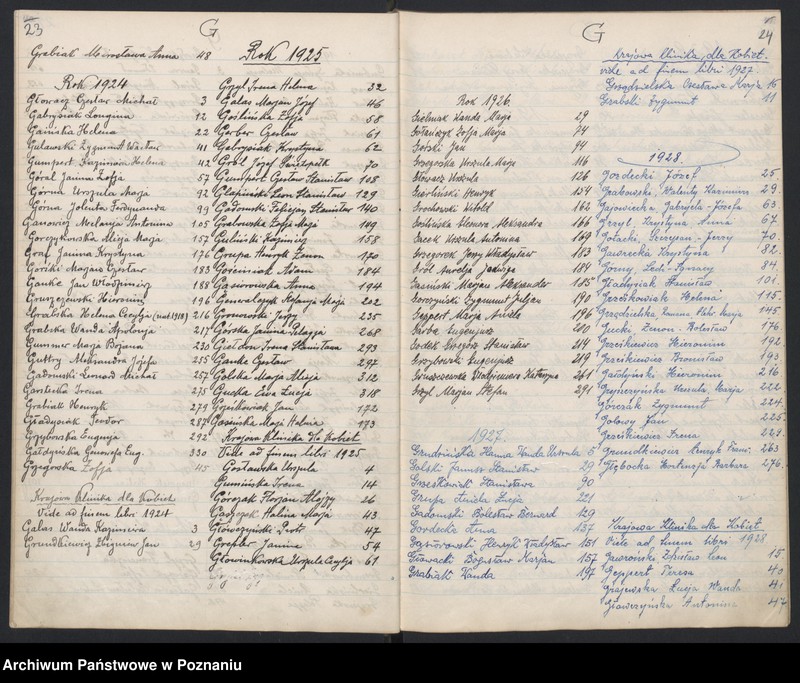 23
G
Grabiak Mirosława Anna 48
Rok 1924
Głowacz Czesław Michał 3
Gabrysiak Longina 12
Gańska Helena 22
Gulawski Zygmunt Wacław 41
Gumpert Kazimiera Helena 42
Góral Janina Zofja 57
Górna Urszula Marja 92
Górna Jolenta Ferdynanda 99
Ganowicz Melanja Antonina 105
Gorczykowska Alicja Marja 157
Graf Janina Krystyna 176
Goricki Marjan Czesław 183
Ganke Jan Włodzimierz 188
Gruszczewski Hieronim 196
Grabska Helena Cecylja (nad. 1918) 216
Grabska Wanda Apolonja 217
Gummer Marja Bojana 230
Guttry Aleksandra Józefa 255
Gadomski Leonard Michał 257
Garstecka Irena 275
Grabiak Henryk 279
Gładysiak Teodor 287
Grzyborska Eugenja 292
Gałdyńska Genowefa Eug. 330
Grzegowska Zofja 45
Krajowa Klinika dla Kobiet
Vide ad finem libri 1924
Galas Wanda Kazimiera 3
Grundkiewicz Zbigniew Jan 29
Rok 1925
Grzyl Irena Helena 32
Galas Marjan Józef 46
Goślińska Zofja 58
Gerber Czesław 61
Gabrysiak Krystyna 62
Grol Józef 70
Gumpert Czesław Stanisław 108
Glapiński Leon Stanisław 129
Gadomski Felicjan Stanisław 140
Grabowska Zofja Marja 149
Guliński Kazimierz 158
Grupa Henryk Zenon 170
Gościniak Adam 184
Gąsiorowska Anna 194
Genwalczyk Stefanja Marja 202
Gronowski Jerzy 235
Górska Janina Pelagja 268
Giełdon Irena Stanisława 293
Ganke Czesław 297
Golska Marja Alicja 312
Gucka Ewa Łucja 318
Gojtkowiak Jan 172
Gąsinska Marja Halina 173
Krajowa Klinika dla Kobiet
Vide ad finem libri 1925
Gostawska Urszula 4
Gumińska Irena 14
Górczak Florjan Alojzy 26
Gaszczek Halina Marja 43
Główczyński Piotr 47
Grepler Janina 54
Głowinkowska Urszula Cecylja 61
G
24
Rok 1926.
Gielniak Wanda Marja 29
Gołańczyk Zofja Marja 74
Górski Jan 94
Grzegorska Urszula Marja 116
Głowacz Urszula 126
Gierliński Henryk 154
Grochowski Witold 162
Goślińska Eleonora Aleksandra 166
Gacek Urszula Antonina 169
Grzegorek Jerzy Władysław 183
Gról Aurelja Jadwiga 184
Gasiński Marjan Alexander 185
Gorczyński Zygmunt Juljan 190
Geppert Marja Aniela 196
Garba Eugenjusz 200
Godek Grzegorz Stanisław 214
Grzybowski Eugenjusz 219
Gruszczewska Włodzimiera Katarzyna 261
Grzyl Marjan Stefan 291
1927.
Grudzińska Hanna Wanda Urszula 5
Golski Janusz Stanisław 29
Grześkiewicz Stanisława 90
Grupa Aniela Łucja 221
Gadomski Bolesław Bernard 129
Gordecka Anna 137
Gąsiorowski Henryk Władysław 151
Głowacki Bogusław Marjan 157
Grabiatti Wanda 197
Krajowa Klinika dla Kobiet.
vide ad finem libri 1927.
Grządzielska Czesława Marja 16
Grabski Zygmunt 11
1928.
Gordecki Józef 25
Grabowski Walenty Kazimierz 29
Gajowiecka Gabryela-Józefa 63
Grzyl Krystyna Anna 67
Gołacki, Seweryn-Jerzy 70
Gawrecka Krystyna 82
Górny, Lech-Ignacy 84
Głuchyniak Stanisław 101
Grześkowiak Helena 115
Grządzielska Janina 145
Gucki Zenon-Bolesław 176
Grześkiewicz Hieronim 192
Grześkiewicz Bronisław 193
Gałdyński Hieronim 216
Urszula Marja 222
Górczak Zygmunt 224
Gołowy Jan 225
Grześkiewicz Irena 228
Grundkiewicz Henryk Fran. 263
Głębocka Konkordja Barbara 276
Krajowa Klinika dla Kobiet
Vide ad finem libri 1928
Gaworiński Zdzisław Leon 15
Geppert Teresa 40
Grajewska Łucja Wanda 41
Główczyńska Antonina 47
Archiwum Państwowe w Poznaniu